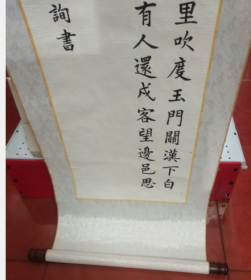 里吹度玉門關漢下白
有人還戍客望邊邑思
詢書